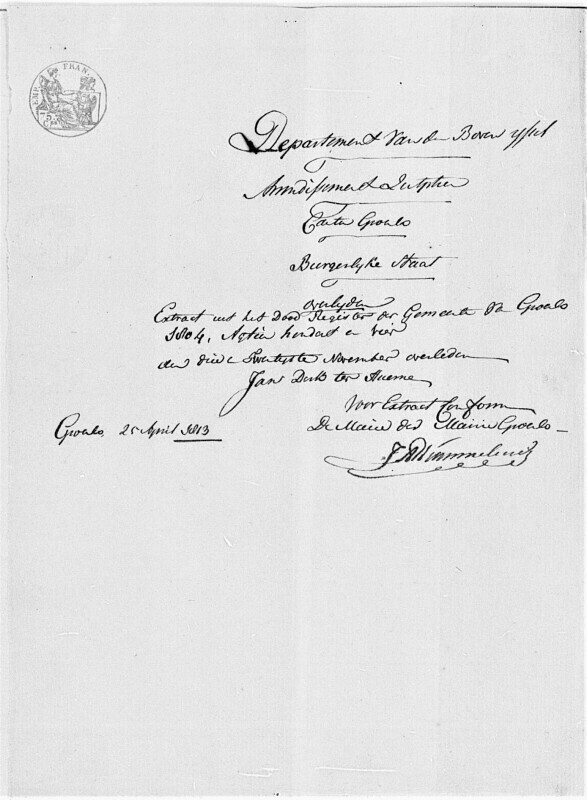 EMP. FRAN.
Departement Van den Boven yssel
Arrondissement Zutphen
Canton Groenlo
Burgerlyke Staat
overlyden
Extract uit het Dood Register der Gemeente van Groenlo
1804, Agtien hondert en vier
den drie Twentigste November overleden
Jan Derk ter Huerne
Voor Extract Conform
De Maire des Mairie Groenlo
Groenlo 25 April 1813